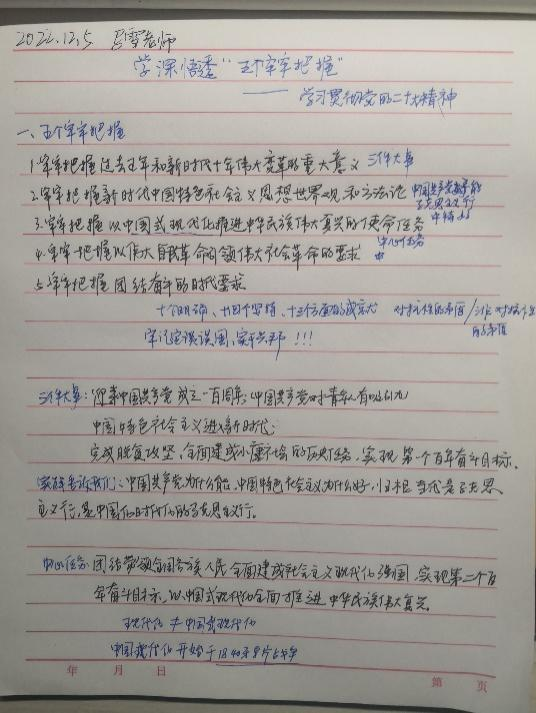 2022.12.5 老师
学深悟透"五个牢牢把握"
——学习贯彻党的二十大精神
一、五个牢牢把握
1.牢牢把握过去五年和新时代十年伟大变革的重大意义 三件大事
2.牢牢把握新时代中国特色社会主义思想世界观和方法论 中国共产党为什么能
马克思主义行
中特好
3.牢牢把握以中国式现代化推进中华民族伟大复兴的使命任务
4.牢牢把握以伟大自我革命引领伟大社会革命的要求 中心任务
5.牢牢把握团结奋斗的时代要求
十个明确、十四个坚持、十三个方面的成就
牢记空谈误国,实干兴邦!!!
三件大事:迎来中国共产党成立一百周年;中国共产党对青年人有吸引力
中国特色社会主义进入新时代;
完成脱贫攻坚、全面建成小康社会的历史任务,实现第一个百年奋斗目标。
实践告诉我们:中国共产党为什么能,中国特色社会主义为什么好,归根到底是马克思
主义行,是中国化时代化的马克思主义行。
中心任务:团结带领全国各族人民全面建成社会主义现代化强国、实现第二个百
年奋斗目标,以中国式现代化全面推进中华民族伟大复兴。
现代化≠中国式现代化
中国现代化开始于1840年鸦片战争
年 月 日 第 页